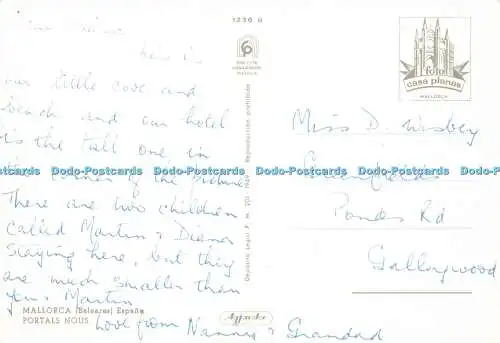 1236 H
here is
our little cove and
beach and our hotel
is the tall one in
the corner of the picture
There are two children
called Martin & Diana
staying here, but they
are much smaller than
you & Martin
love from Nanny & Grandad
MALLORCA (Baleares) España
PORTALS NOUS
Reproducción prohibida
foto
casa planas
MALLORCA
Miss D. Wisbey
Greenfields
Ponds Rd
Galleywood
Dodo-Postcards Dodo-Postcards Dodo-Postcards Dodo-Postcards Dodo-Postcards